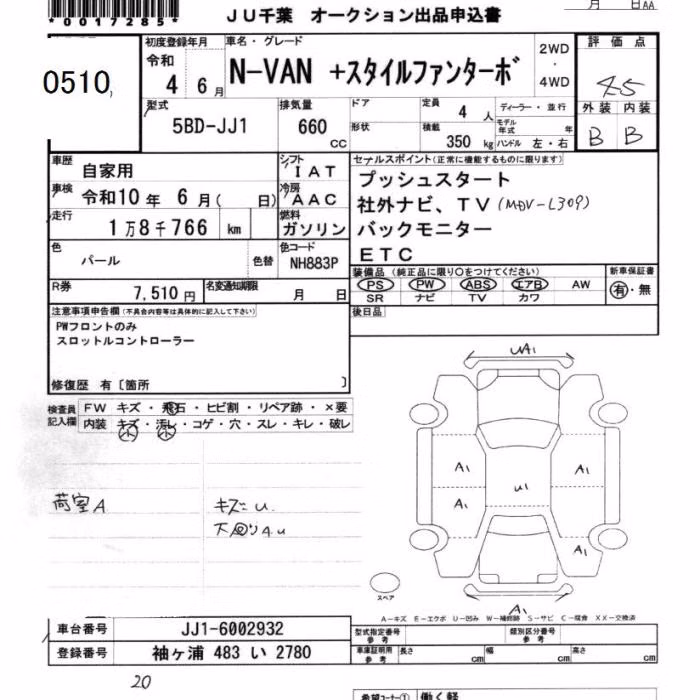 *0017285*
JU千葉 オークション出品申込書
月 日AA
0510,
初度登録年月
令和
4 年 6 月
車名・グレード
N-VAN +スタイルファンターボ
2WD
・
4WD
評価点
4.5
外装 内装
B B
型式
5BD-JJ1
排気量
660 CC
ドア
形状
定員 4 人
積載 350 kg
ディーラー・並行
モデル年式 年
ハンドル 左・右
車歴
自家用
シフト
IAT
車検
令和10 年 6 月( 日)
冷房
AAC
走行
1万8千766 km
燃料
ガソリン
色
パール
色替
色コード
NH883P
R券
7,510 円
名変通知期限
月 日
セールスポイント(正常に機能するものに限ります)
プッシュスタート
社外ナビ、TV (MDV-L309)
バックモニター
ETC
装備品(純正品に限り○をつけてください)
PS PW ABS エアB AW
SR ナビ TV カワ
新車保証書
有・無
後日品
注意事項申告欄(不具合内容等は具体的に記入して下さい)
PWフロントのみ
スロットルコントローラー
修復歴 有〔箇所 〕
検査員記入欄
FW キズ・飛石・ヒビ割・リペア跡・×要
内装 キズ・汚レ・コゲ・穴・スレ・キレ・破レ
小 小
荷室A
キズ=U
下回り4U
UA1
A1 A1
A1 U1
A1
A1
スペア
A-キズ E-エクボ U-凹み W-補修跡 S-サビ C-腐食 XX-交換済
車台番号 JJ1-6002932
登録番号 袖ヶ浦 483 い 2780
型式指定番号
参考
類別区分番号
参考
車庫証明用
参考
長さ cm
幅 cm
高さ cm
20
希望コーナー① 働く軽